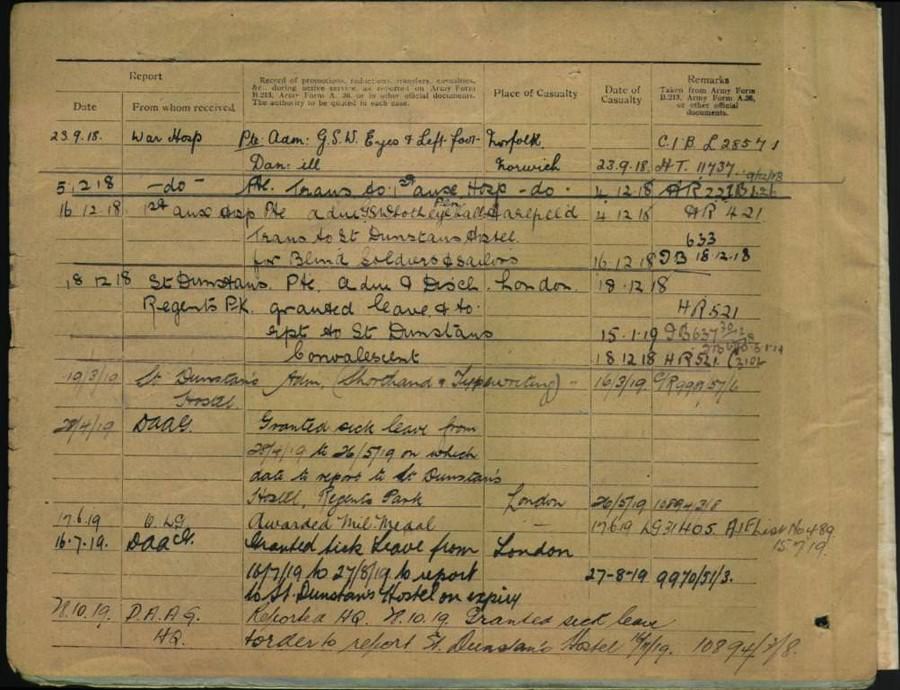 Report
Record of promotions, reductions, transfers, casualties,
&c., during active service, as reported on Army Form
B.213, Army Form A. 36, or in other official documents.
The authority to be quoted in each case.
Remarks
Taken from Army Form
B.213, Army Form A.36,
or other official
documents.
Date From whom received. Place of Casualty Date of
Casualty
23.9.18. War Hosp Pte: Adm: G.S.W. Eyes & Left foot Norfolk, C.I.B. L 28571
Dan: ill Norwich 23.9.18. H.T. 11737
5.12.18 -do- Pte. Trans to 1st Auxe Hosp -do- 4.12.18
16.12.18. 1st Aux Hosp Pte adm Harefield 4 12 18 HR 421
Trans to St Dunstans Hostel 633
for Blind Soldiers & Sailors 16.12.18 DB 18.12.18
18 12 18 St Dunstans. Pte. adm & Disch. London. 18.12 18
Regents Pk. granted leave & to HR521
rpt to St Dunstans 15.1.19
Convalescent 18 12 18 HR521
19/3/19 St Dunstan's Adm, (Shorthand & Typewriting) - 16/3/19
Hostel.
28/4/19 DAAG. Granted sick leave from
28/4/19 to 26/5/19 on which
date to report to St Dunstan's
Hostel, Regents Park London 26/5/19
17.6.19 LG. Awarded Mil: Medal - 17.6.19 LG31405. AIF List No 489
15 7 19.
16.7.19. DAAG. Granted Sick Leave from London
16/7/19 to 27/8/19 to report 27-8-19 9970/51/3.
to St. Dunstan's Hostel on expiry
28.10.19. D.A.A.G. Reported HQ. 28.10.19. Granted sick leave
HQ. & order to report St. Dunstan's Hostel 10894/7/8.